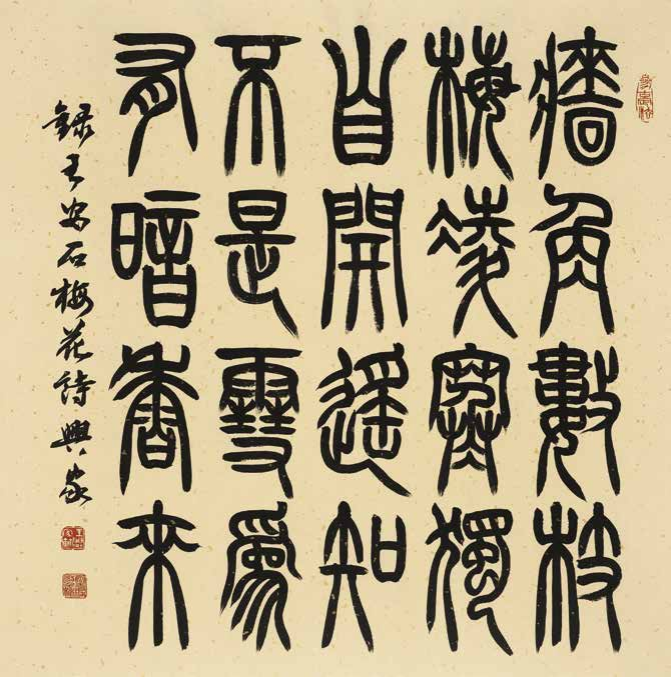 牆角數枝
梅凌寒獨
自開遥知
不是雪爲
有暗香來
録王安石梅花詩興家